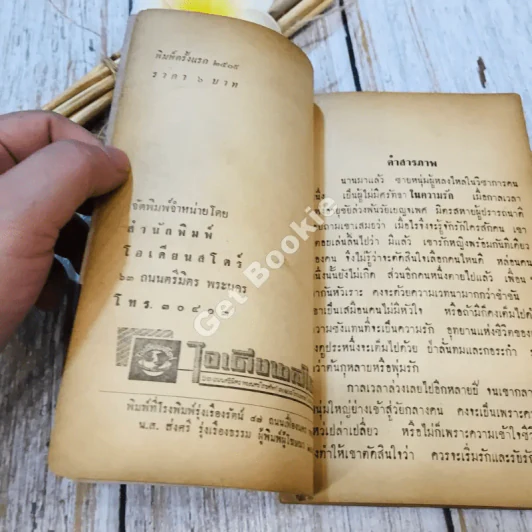 พิมพ์ครั้งแรก ๒๕๑๕
ราคา ๖ บาท
จัดพิมพ์จำหน่ายโดย
สำนักพิมพ์
โอเดียนสโตร์
๖๓ ถนนตรีมิตร พระนคร
โทร. ๓๐๔๐๔
โอเดียนสโ
พิมพ์ที่โรงพิมพ์รุ่งเรืองรัตน์ ๔๗ ถนนเฟื่องนคร
น.ส. สังศรี รุ่งเรืองธรรม ผู้พิมพ์ผู้โฆษณา
คำสารภาพ
นานมาแล้ว ชายหนุ่มผู้หลงใหลในวิชาการคน
หนึ่ง เป็นผู้ไม่มีศรัทธา ในความรัก เมื่อกาลเวลา
ล่วงพ้นวัยเบญจเพศ มิตรสหายผู้ยารถนาดี
ถามเขาเสมอว่า เมื่อไรจึงจะรู้จักรักใครสักคน เขา
คอยเล่นลิ้นไปว่า มีแล้ว เขารักหญิงพร้อมกันทีเดียว
คน จึงไม่รู้ว่าจะตัดใจเลือกคนไหนดี หล่อนคน
นั้นยังไม่เกิด ส่วนอีกคนหนึ่งตายไปแล้ว เพื่อน
กันหัวเราะ คงจะด้วยความเวทนามากกว่าขำขัน
เป็นเสมือนคนไม่มีหัวใจ หรือถ้ามีก็คงเต็มไปด้วย
ความชังแทนที่จะเป็นความรัก อุทยานแห่งชีวิตของ
คู่ประหนึ่งจะเต็มไปด้วย ยำสันทมและกอระกำ
ว่าต้นกุหลาบหรือพุ่มรัก
กาลเวลาล่วงเลยไปอีกหลายปี จนเขากลาย
หนุ่มใหญ่ย่างเข้าสู่วัยกลางคน คงจะเป็นเพราะความ
เปล่าเปลี่ยว หรือไม่ก็เพราะความเข้าใจชีวิต
ทำให้เขาตัดสินใจว่า ควรจะเริ่มรักและรู้จักรัก
Get Bookie